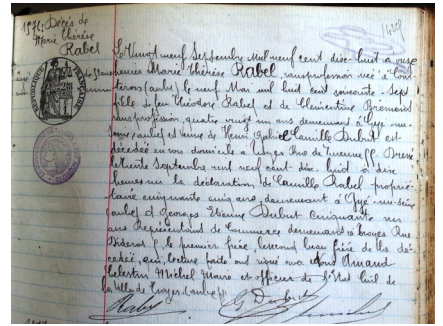 1576. Décès de
Marie Thérèse
Rabel
RÉPUBLIQUE FRANÇAISE
Le Vingt neuf Septembre Mil neuf cent dix-huit à onze
heures Marie Thérèse Rabel, sans profession née à
(aube) le neuf Mai mil huit cent soixante sept
fille de feu Théodore Rabel et de Clémentine
sans profession, quatre vingt un ans demeurant à
(aube) et Veuve de Henri Gabriel Camille Dubut est
décédée en son domicile à Troyes Rue de Turenne 55. Dressé
le trente Septembre mil neuf cent dix-huit à dix
heures sur la déclaration de Camille Rabel proprié-
taire cinquante cinq ans demeurant à
(aube) et Georges Etienne Dubut cinquante un
ans Représentant de Commerce demeurant à Troyes Rue
Diderot, le premier frère, le second beau frère de la dé-
cédée, qui, lecture faite ont signé avec Nous Amand
Célestin Michel Maire et officier de l'Etat Civil de
la Ville de Troyes (aube).
Rabel G Dubut